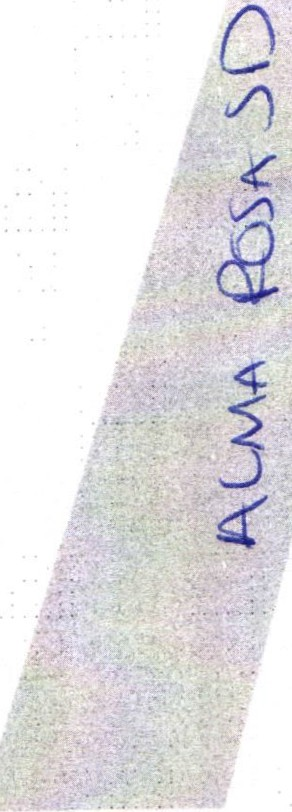 ALMA ROSA SD